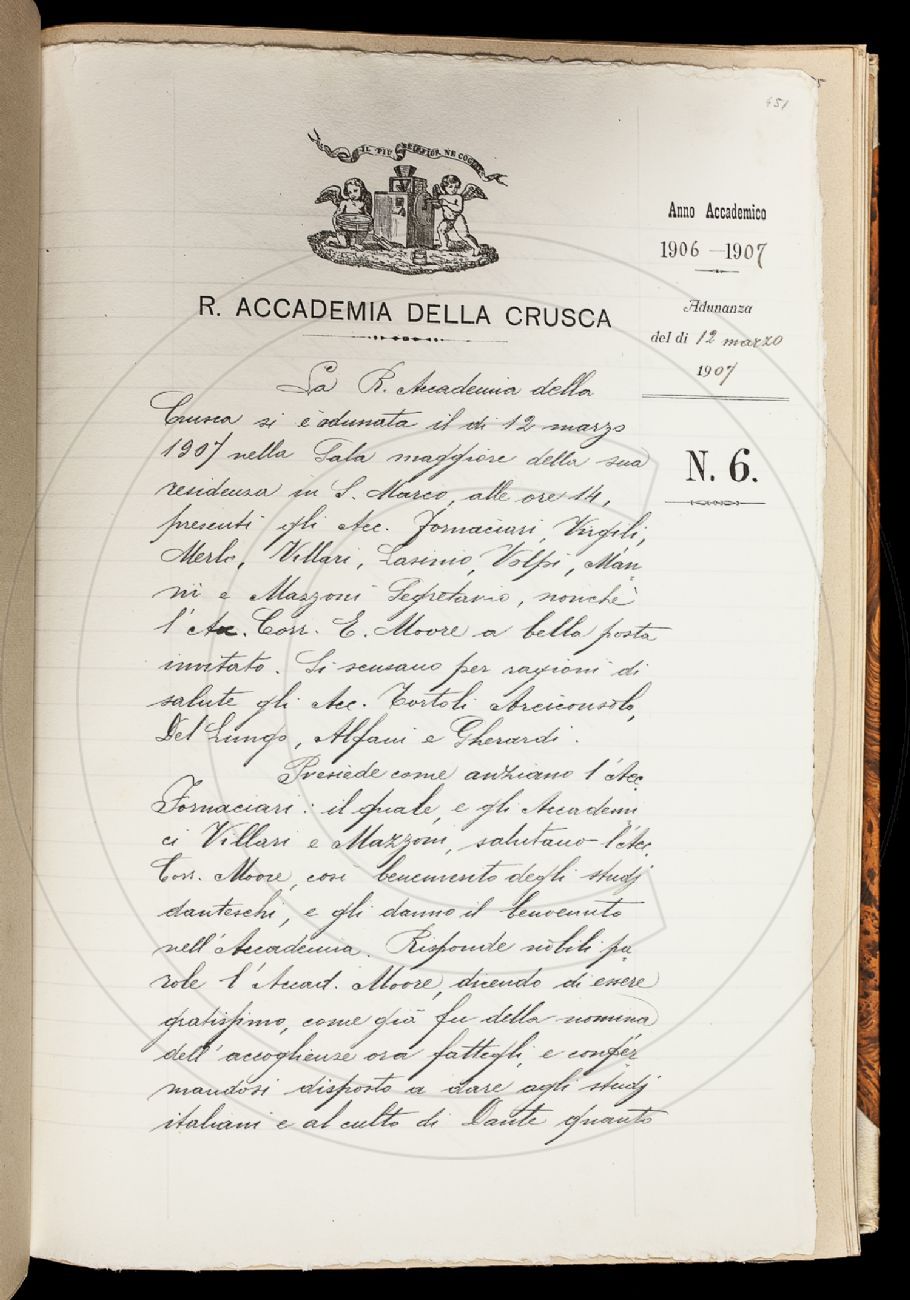 451
IL PIÙ BEL FIOR NE COGLIE
Anno Accademico
1906 — 1907
R. ACCADEMIA DELLA CRUSCA
Adunanza
del dì 12 marzo
1907
N. 6.
La R. Accademia della
Crusca si è adunata il dì 12 marzo
1907 nella Sala maggiore della sua
residenza in S. Marco, alle ore 14,
presenti gli Acc. Fornaciari, Virgili,
Merlo, Villari, Lasinio, Volpi, Man-
ni e Mazzoni Segretario, nonchè
l'Acc. Corr. E. Moore a bella posta
invitato. Si scusano per ragioni di
salute gli Acc. Tortoli Arciconsolo,
Del Lungo, Alfani e Gherardi.
Presiede come anziano l'Acc.
Fornaciari: il quale, e gli Accademi
ci Villari e Mazzoni, salutano l'Acc.
Corr. Moore, così benemerito degli studj
danteschi, e gli danno il benvenuto
nell'Accademia. Risponde nobili pa-
role l'Accad. Moore, dicendo di essere
gratissimo, come già fu della nomina
dell'accoglienze ora fattegli, e confer
mandosi disposto a dare agli studj
italiani e al culto di Dante quanto